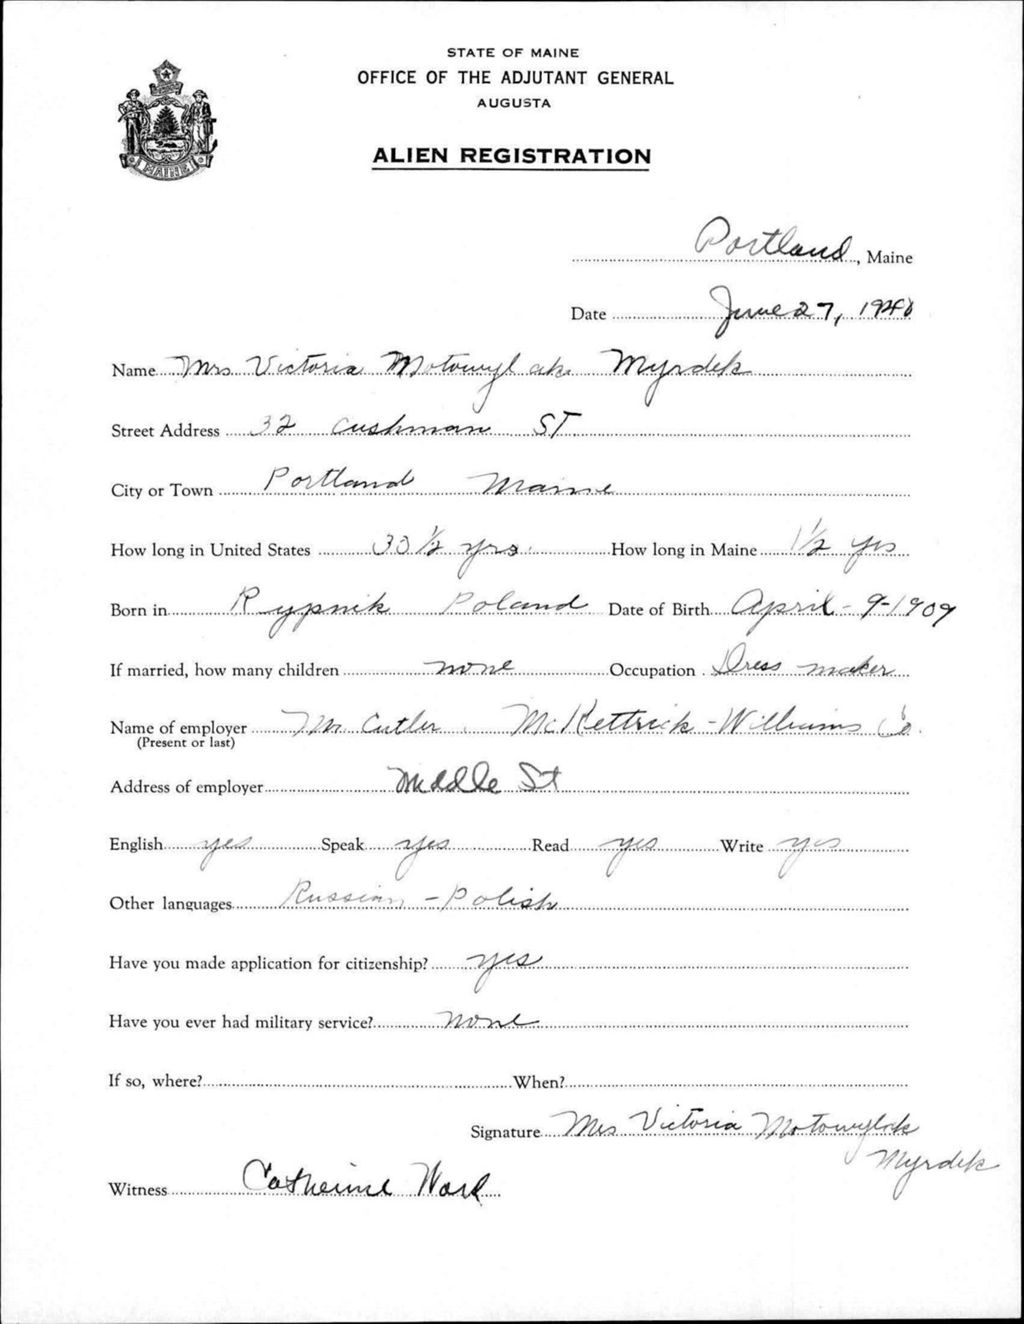 STATE OF MAINE
OFFICE OF THE ADJUTANT GENERAL
AUGUSTA
MAINE
ALIEN REGISTRATION
Portland, Maine
Date June 27, 1940
Name Mrs Victoria Motowyl aka Myrdek
Street Address 32 Cushman ST
City or Town Portland Maine
How long in United States 30 1/2 yrs How long in Maine 1 1/2 yrs
Born in Rypnik Poland Date of Birth April - 9 - 1909
If married, how many children none Occupation Dress maker
Name of employer Mr Cutler McKettrick - Williams Co.
(Present or last)
Address of employer Middle St
English yes Speak yes Read yes Write yes
Other languages Russian - Polish
Have you made application for citizenship? yes
Have you ever had military service? none
If so, where? When?
Signature Mrs Victoria
Myrdek
Witness Catherine Ward